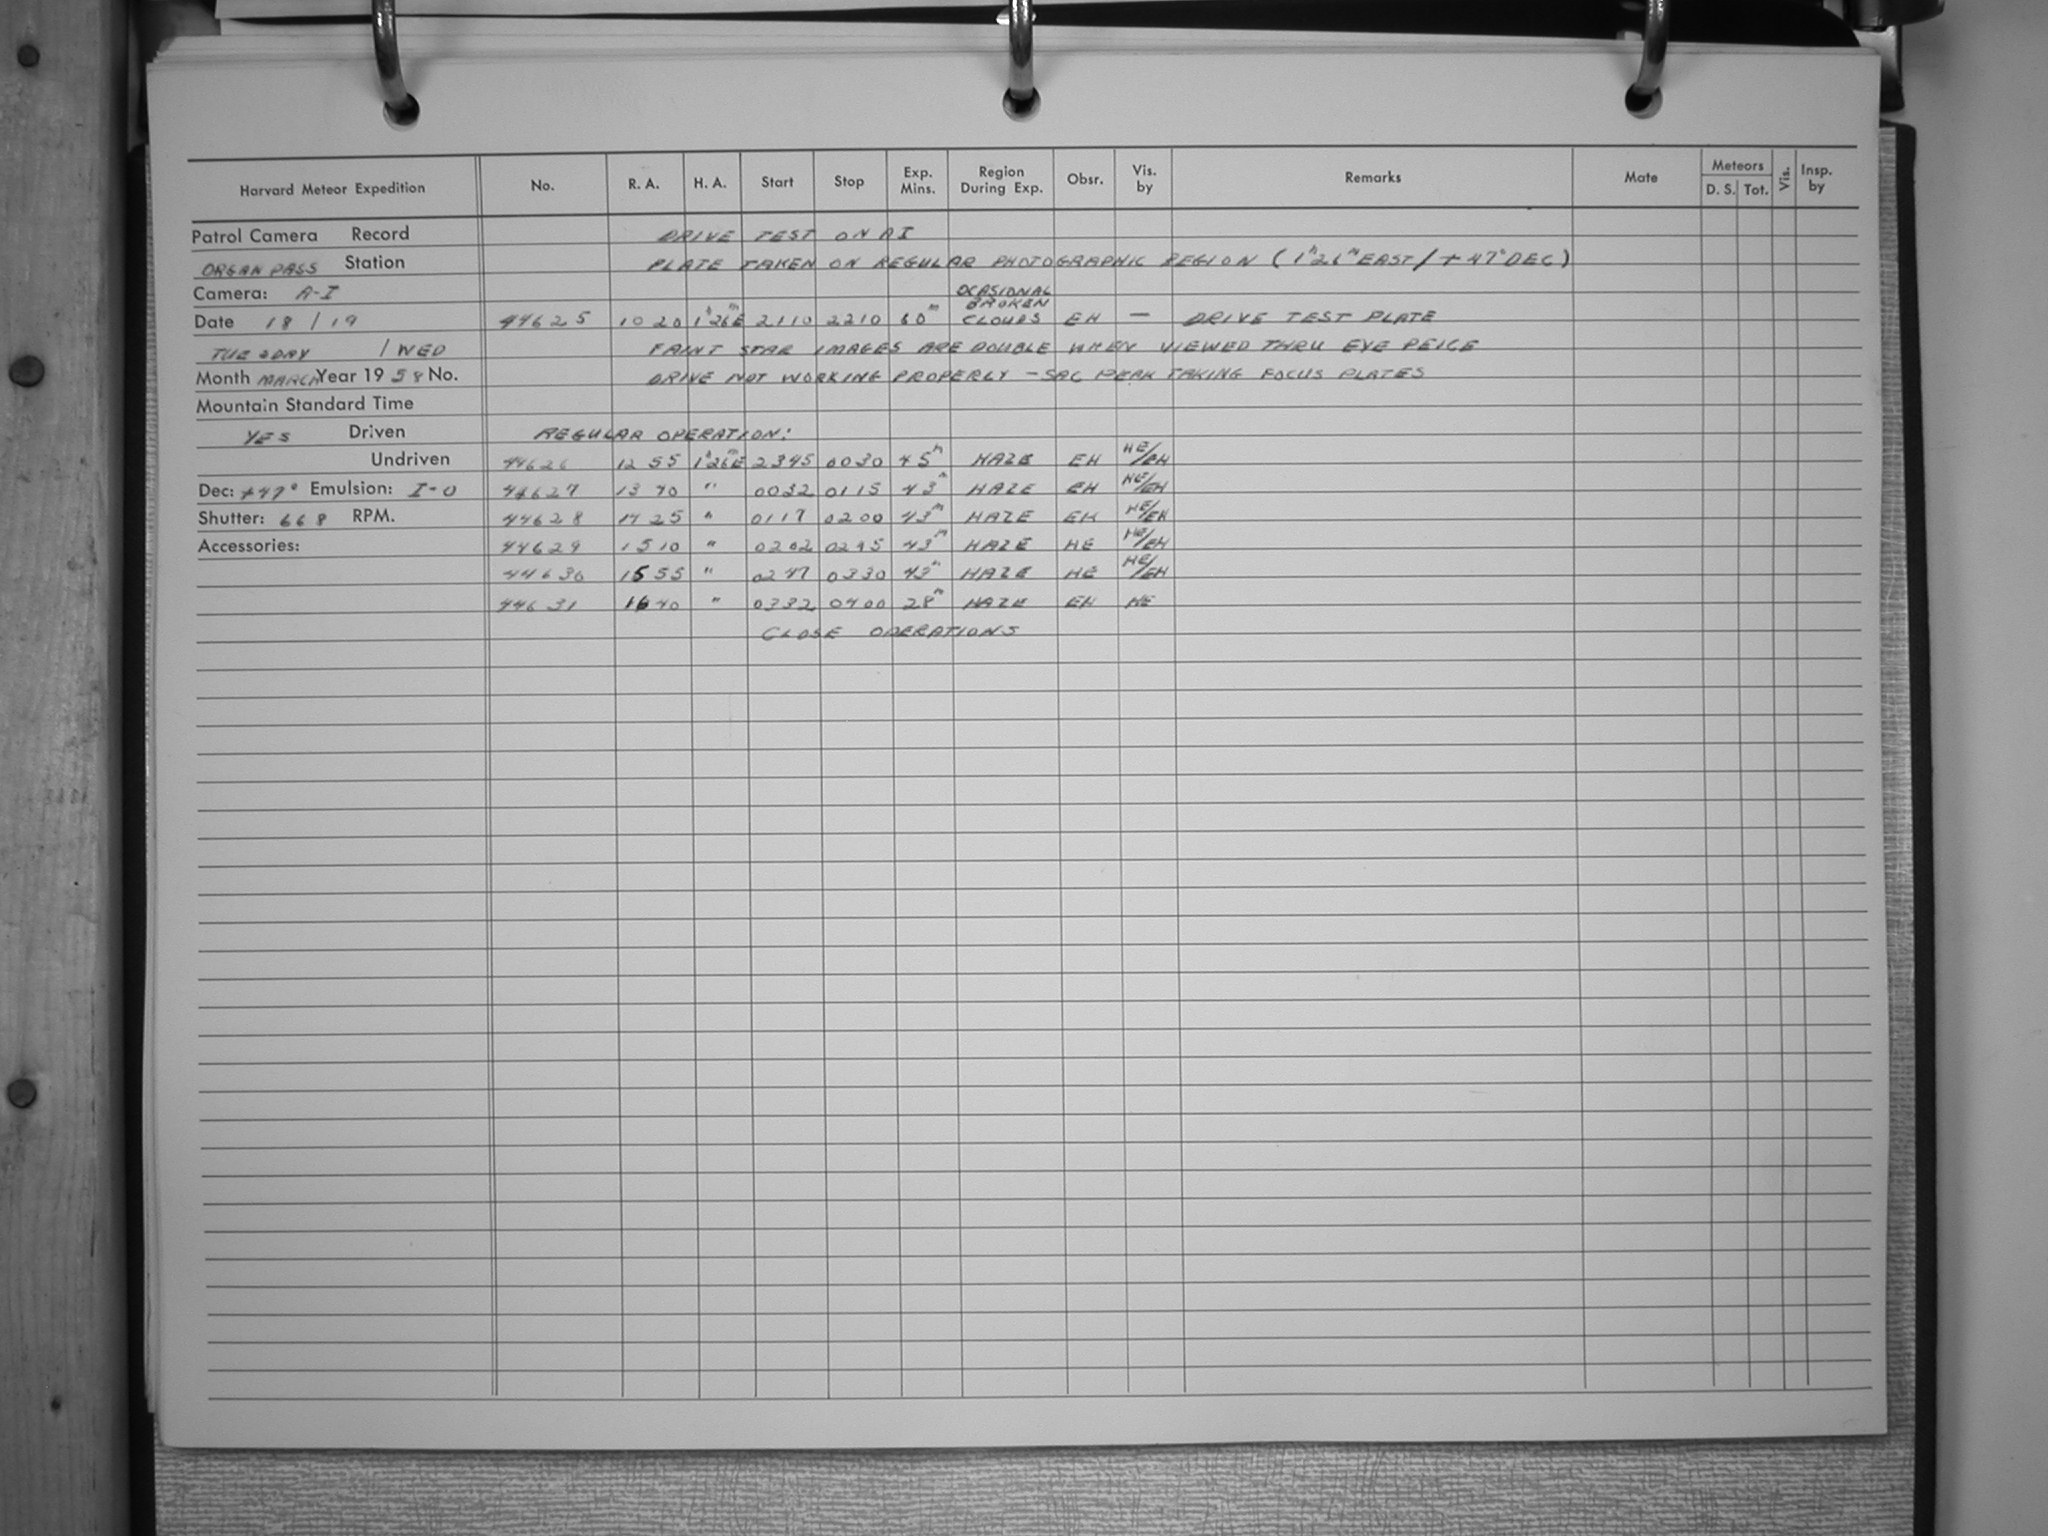 Harvard Meteor Expedition No. R. A. H. A. Start Stop Exp. Mins. Region During Exp. Obsr. Vis. by Remarks Mate Meteors D. S. Tot. Vis. Insp. by
Patrol Camera Record DRIVE TEST ON AI
ORGAN PASS Station PLATE TAKEN ON REGULAR PHOTOGRAPHIC REGION (1h26m EAST/+47° DEC)
Camera: A-I OCASIONAL BROKEN
Date 18/19 44625 10 20 1h26mE 2110 2210 60m CLOUDS EH — DRIVE TEST PLATE
TUESDAY / WED FAINT STAR IMAGES ARE DOUBLE WHEN VIEWED THRU EYE PEICE
Month MARCH Year 1958 No. DRIVE NOT WORKING PROPERLY - SAC PEAK TAKING FOCUS PLATES
Mountain Standard Time
YES Driven REGULAR OPERATION:
Undriven 44626 12 55 1h26mE 2345 0030 45m HAZE EH HE/EH
Dec: +47° Emulsion: I-O 44627 13 40 " 0032 0115 43m HAZE EH HE/EH
Shutter: 668 RPM. 44628 14 25 " 0117 0200 43m HAZE EH HE/EH
Accessories: 44629 15 10 " 0202 0245 43m HAZE HE HE/EH
44630 1555 " 0247 0330 43m HAZE HE HE/EH
44631 1640 " 0332 0400 28m HAZE EH HE
CLOSE OPERATIONS